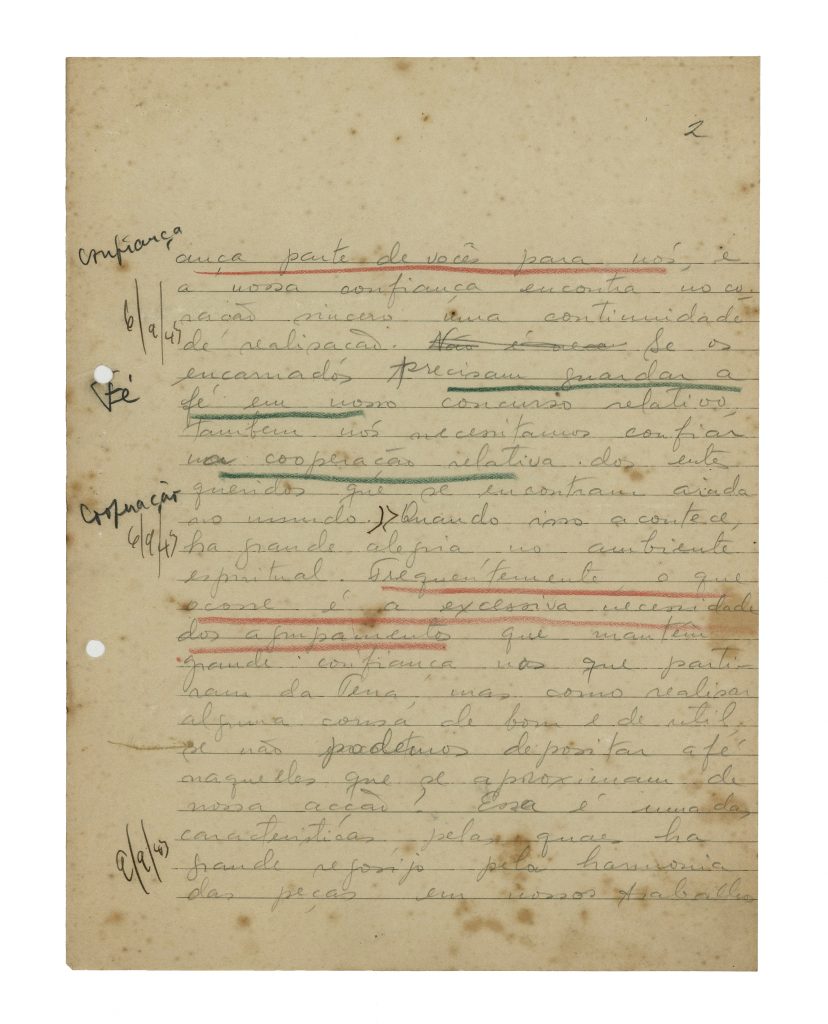 2
Confiança
ança parte de vocês para nós, e
a nossa confiança encontra no co-
ração sincero uma continuidade
6/9/45
de realisação. Se os
encarnados precisam guardar a
Fé
fé em nosso concurso relativo,
tambem nós necessitamos confiar
na cooperação relativa dos entes
queridos que se encontram ainda
Cooperação
no mundo. Quando isso acontece,
6/9/45
ha grande alegria no ambiente
espiritual. Frequentemente, o que
ocorre é a excessiva necessidade
dos agrupamentos que mantêm
grande confiança nos que parti-
ram da Terra, mas como realisar
alguma cousa de bom e de util
se não podemos depositar a fé
naquelles que se aproximam de
nossa acção? Essa é uma das
caracteristicas pelas quaes ha
9/9/45
grande regosijo pela harmonia
das peças em nossos trabalhos